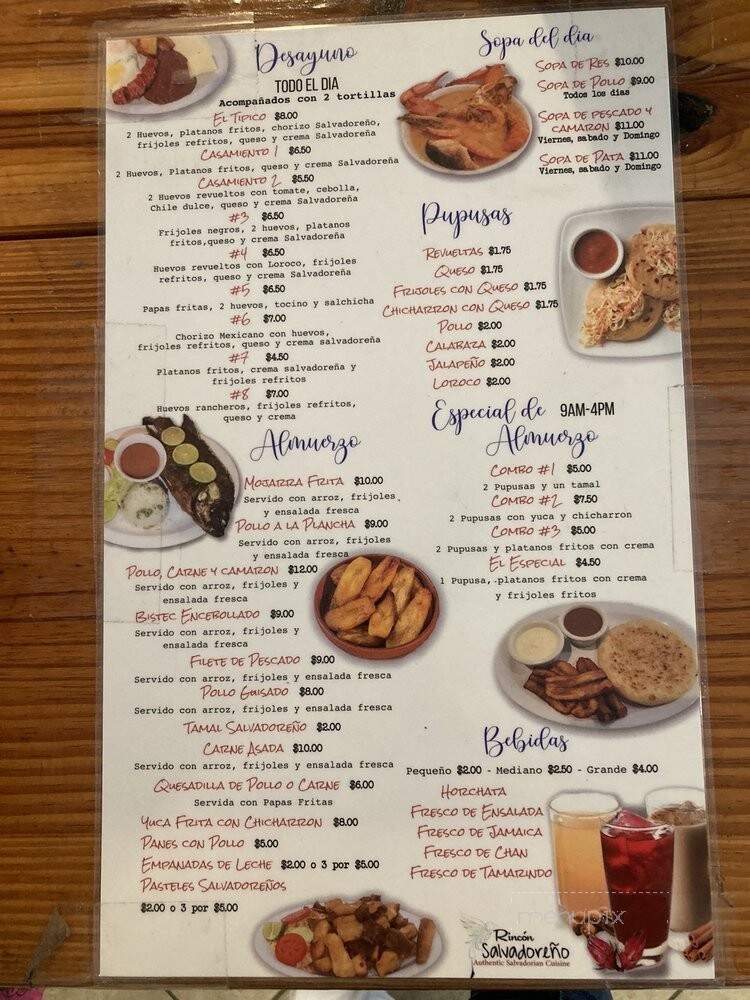 Desayuno
TODO EL DIA
Acompañados con 2 tortillas
El Tipico $8.00
2 Huevos, platanos fritos, chorizo Salvadoreño,
frijoles refritos, queso y crema Salvadoreña
Casamiento 1 $6.50
2 Huevos, Platanos fritos, queso y crema Salvadoreña
Casamiento 2 $5.50
2 Huevos revueltos con tomate, cebolla,
Chile dulce, queso y crema Salvadoreña
#3 $6.50
Frijoles negros, 2 huevos, platanos
fritos,queso y crema Salvadoreña
#4 $6.50
Huevos revueltos con Loroco, frijoles
refritos, queso y crema Salvadoreña
#5 $6.50
Papas fritas, 2 huevos, tocino y salchicha
#6 $7.00
Chorizo Mexicano con huevos,
frijoles refritos, queso y crema salvadoreña
#7 $4.50
Platanos fritos, crema salvadoreña y
frijoles refritos
#8 $7.00
Huevos rancheros, frijoles refritos,
queso y crema
Almuerzo
Mojarra Frita $10.00
Servido con arroz, frijoles,
y ensalada fresca
Pollo a la Plancha $9.00
Servido con arroz, frijoles
y ensalada fresca
Pollo, Carne y camaron $12.00
Servido con arroz, frijoles y
ensalada fresca
Bistec Encebollado $9.00
Servido con arroz, frijoles y
ensalada fresca
Filete de Pescado $9.00
Servido con arroz, frijoles y ensalada fresca
Pollo Guisado $8.00
Servido con arroz, frijoles y ensalada fresca
Tamal Salvadoreño $2.00
Carne Asada $10.00
Servido con arroz, frijoles y ensalada fresca
Quesadilla de Pollo o Carne $6.00
Servida con Papas Fritas
Yuca Frita con Chicharron $8.00
Panes con Pollo $5.00
Empanadas de Leche $2.00 o 3 por $5.00
Pasteles Salvadoreños
$2.00 o 3 por $5.00
Sopa del dia
Sopa de Res $10.00
Sopa de Pollo $9.00
Todos los dias
Sopa de pescado y
camaron $11.00
Viernes, sabado y Domingo
Sopa de Pata $11.00
Viernes, sabado y Domingo
Pupusas
Revueltas $1.75
Queso $1.75
Frijoles con Queso $1.75
Chicharron con Queso $1.75
Pollo $2.00
Calabaza $2.00
Jalapeño $2.00
Loroco $2.00
Especial de 9AM-4PM
Almuerzo
Combo #1 $5.00
2 Pupusas y un tamal
Combo #2 $7.50
2 Pupusas con yuca y chicharron
Combo #3 $5.00
2 Pupusas y platanos fritos con crema
El Especial $4.50
1 Pupusa, platanos fritos con crema
y frijoles fritos
Bebidas
Pequeño $2.00 - Mediano $2.50 - Grande $4.00
Horchata
Fresco de Ensalada
Fresco de Jamaica
Fresco de Chan
Fresco de Tamarindo
menupix
Rincón
Salvadoreño
Authentic Salvadorian Cuisine